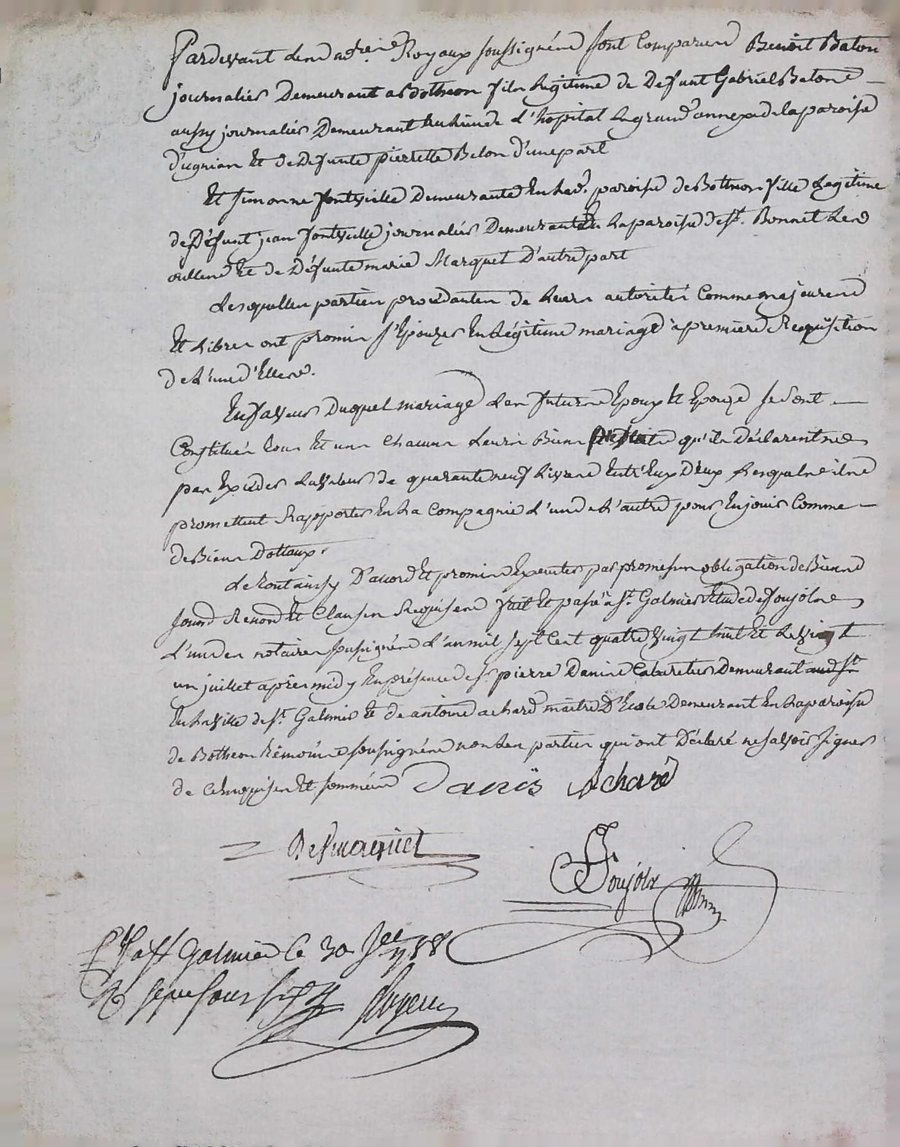 Pardevant les notres Royaux soussignés sont Comparus Benoit Baton
journalier Demeurant a Bothéon fils Legitime de Defunt Gabriel Baton
aussy journalier Demeurant au lieu de L'hopital Legrand annexe de la paroisse
d'ugnian Et de Defunte pierrette Belon d'une part
Et Simonne fontvielle Demeurante En lad. paroisse de Bothéon fille Legitime
de Défunt jean fontvielle journalier Demeurant En la paroisse de St. Bonnet Les
oulles Et de Défunte marie Marquet D'autre part
Lesquelles parties procédantes de Leurs autorités Comme majeures
Et Libres ont promis s'Epouser En Légitime mariage à première Requisition
de L'une d'Elles.
En faveur Duquel mariage Les futurs Epoux Et Epouze se sont
Constitués tous Et uns Chacuns Leurs Biens qu'ils Déclarent ne
pas Excéder La valeur de quarante neuf Livres Entr'Eux Deux Lesquels ils
promettent Rapporter En La Compagnie L'un de L'autre pour En jouir Comme
de Biens Dottaux.
Le tout ainsy D'accord Et promis Executer par promesses obligation de Biens
soumd Renond Et Clauses Requises fait Et passé a St. Galmier Etude de Soujols
L'un des notaires soussignés L'an mil sept Cent quatre vingt huit Et Le vingt
un juillet après midy En présence de Sr pierre Danis Cabaretier Demeurant
En La ville de St. Galmier Et de antoine achard maitre D'Ecole Demeurant En La paroisse
de Bothéon témoins soussignés non Les parties qui ont Déclaré ne savoir signer
de Ce Requises Et sommées Danis Achard
Desmaquet
Soujols
St Galmier le 30 Jet 1788
R sept sous six